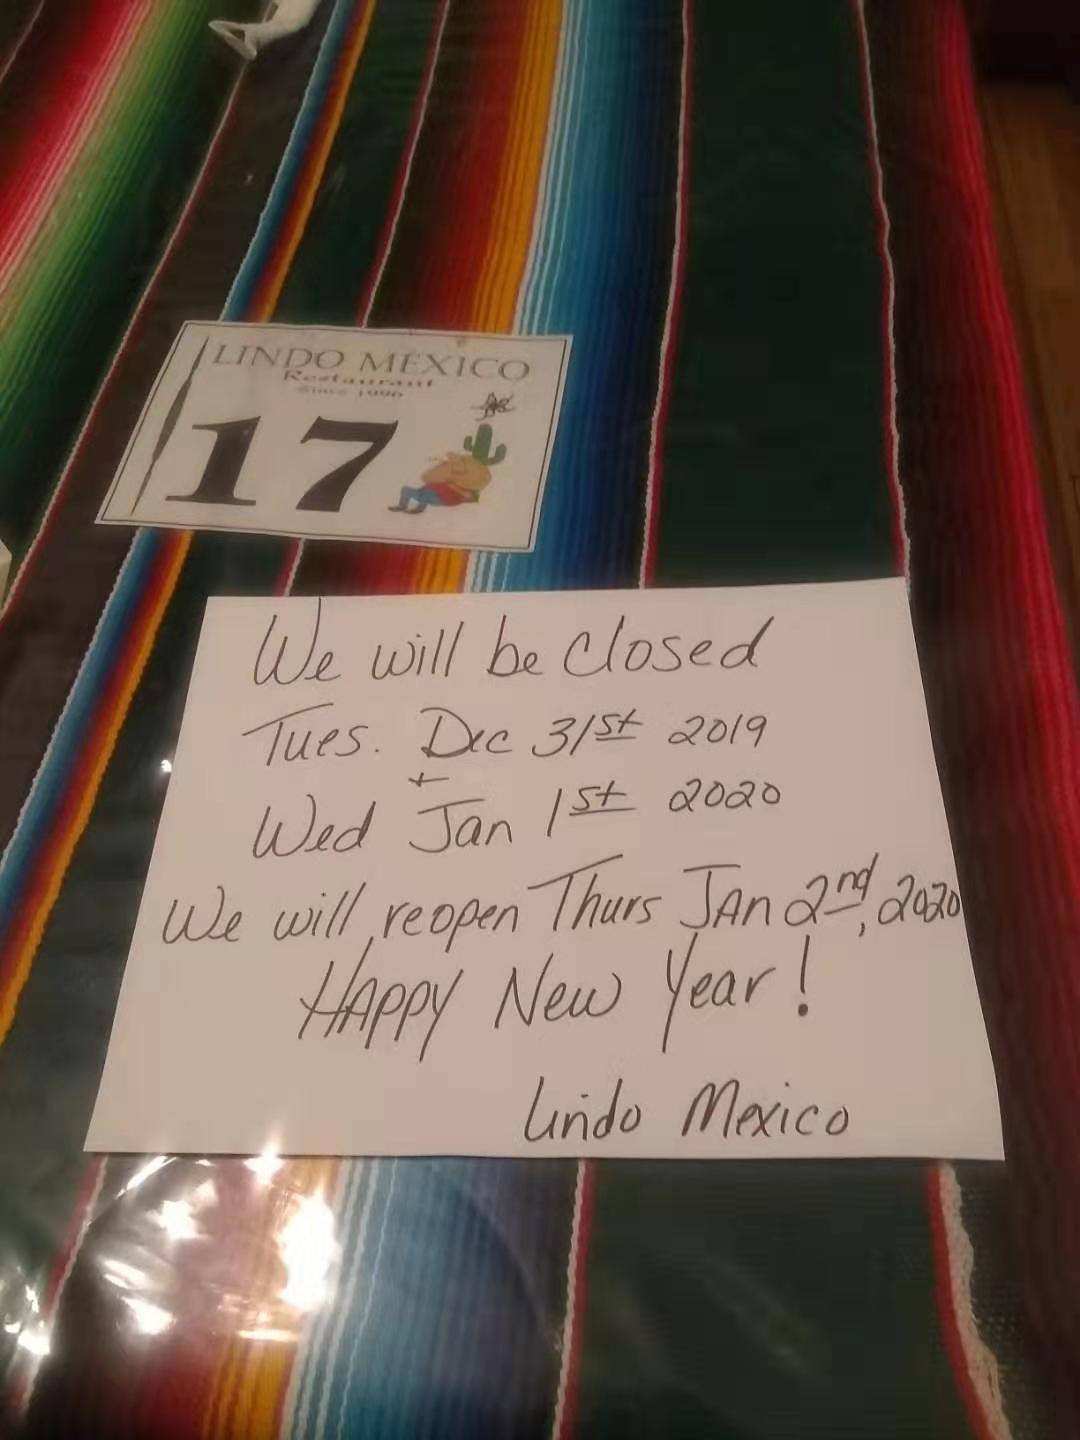 LINDO MEXICO
Restaurant
Since 1996
17
We will be closed
Tues. Dec 31st 2019
+
Wed Jan 1st 2020
We will reopen Thurs JAn 2nd, 2020
HAppy New Year!
Lindo Mexico